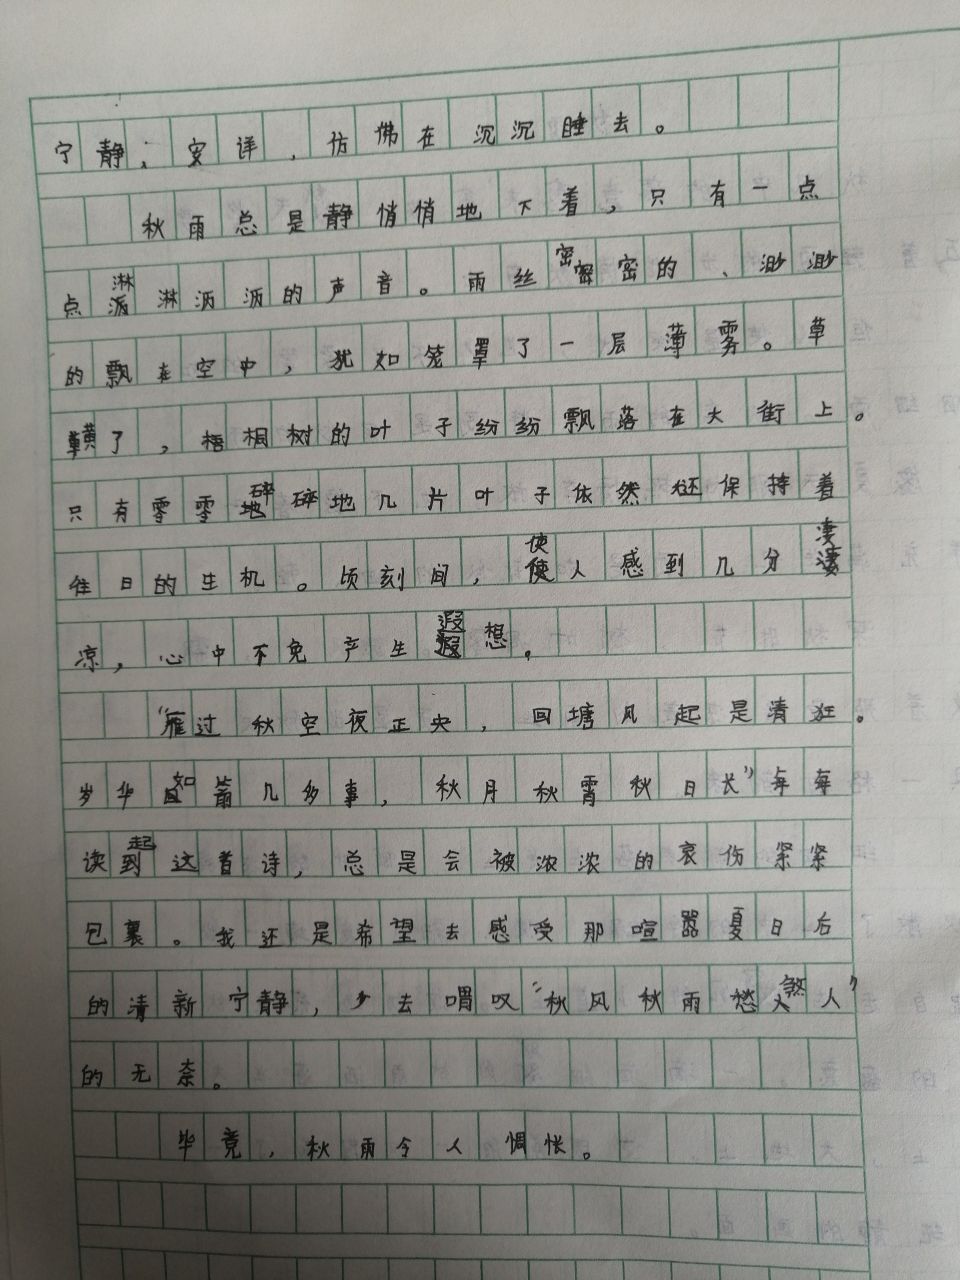 宁静，安详，仿佛在沉沉睡去。
秋雨总是静悄悄地下着，只有一点
点淋淋沥沥的声音。雨丝密密的、渺渺
的飘在空中，犹如笼罩了一层薄雾。草
黄了，梧桐树的叶子纷纷飘落在大街上。
只有零零碎碎地几片叶子依然还保持着
往日的生机。顷刻间，使人感到几分凄
凉，心中不免产生遐想。
“雁过秋空夜正央，回塘风起是清狂。
岁华如箭几多事，秋月秋霄秋日长”每每
读起这首诗，总是会被浓浓的哀伤紧紧
包裹。我还是希望去感受那喧嚣夏日后
的清新宁静，少去喟叹“秋风秋雨愁煞人”
的无奈。
毕竟，秋雨令人惆怅。